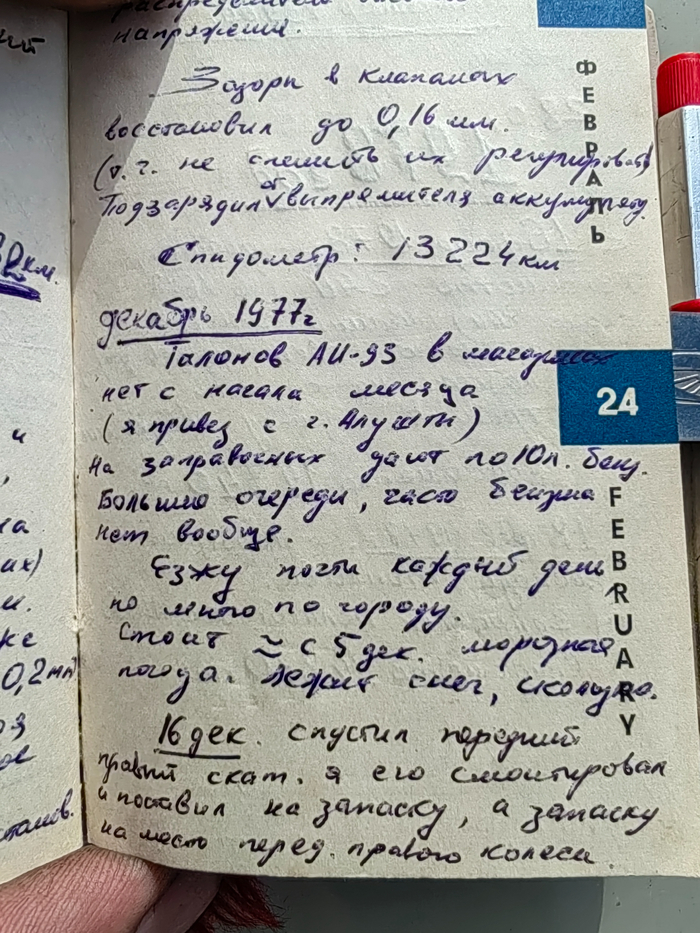 распределителя
напряжения.
Зазоры в клапанах
восстановил до 0,16 мм.
(т.г. не спешить их регулировать)
от
Подзарядил выпрямителя аккумулятор.
Спидометр: 13224 км
декабрь 1977г
Талонов АИ-93 в магазинах
нет с начала месяца
(я привез с г. Алушты)
На заправочных дают по 10 л. бенз.
Большие очереди, часто бензина
нет вообще.
Езжу почти каждый день
но много по городу.
Стоит ≈ с 5 дек. морозная
погода. Лежит снег, скользко.
16 дек. спустил передний
правый скат. я его смонтировал
и поставил на запаску, а запаску
на место перед. правого колеса.
ФЕВРАЛЬ
24
FEBRUARY
км.
и
их)
0,2мм